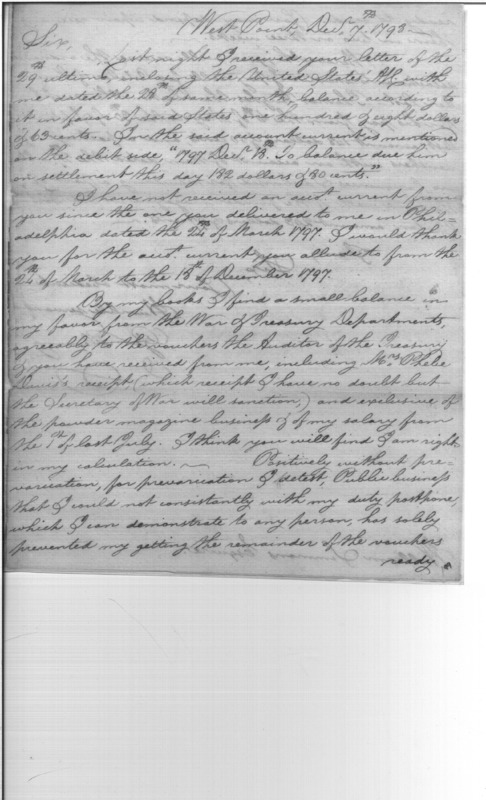 West Point, Dec.r 7th 1798
Sir,
Last night I received your letter of the
29th ultimo, inclosing the United States' Aff. with
me dated the 28th of same month, balance according to
it in favor of said States one hundred & eight dollars
& 63 cents. In the said account current is mentioned
on the debit side, "1797 Dec.r 18th To balance due him
on settlement this day 182 dollars & 80 cents."
I have not received an acc.t current from
you since the one you delivered to me in Phil=
adelphia dated the 24th of March 1797. I would thank
you for the acct. current you allude to from the
24th of March to the 18th of December 1797.
By my books I find a small balance in
my favor from the War & Treasury Departments,
agreeably to the vouchers the Auditor of the Treasury
& you have received from me, including Mrs. Phebe
Davis's receipt (which receipt I have no doubt but
the Secretary of War will sanction,) and exclusive of
the powder magazine business & of my salary from
the 1st of last July. I think you will find I am right
in my calculation. ~ Positively without pre=
varication, for prevarication I detest, Public business
that I could not consistently with my duty postpone,
which I can demonstrate to any person, has solely
prevented my getting the remainder of the vouchers
ready